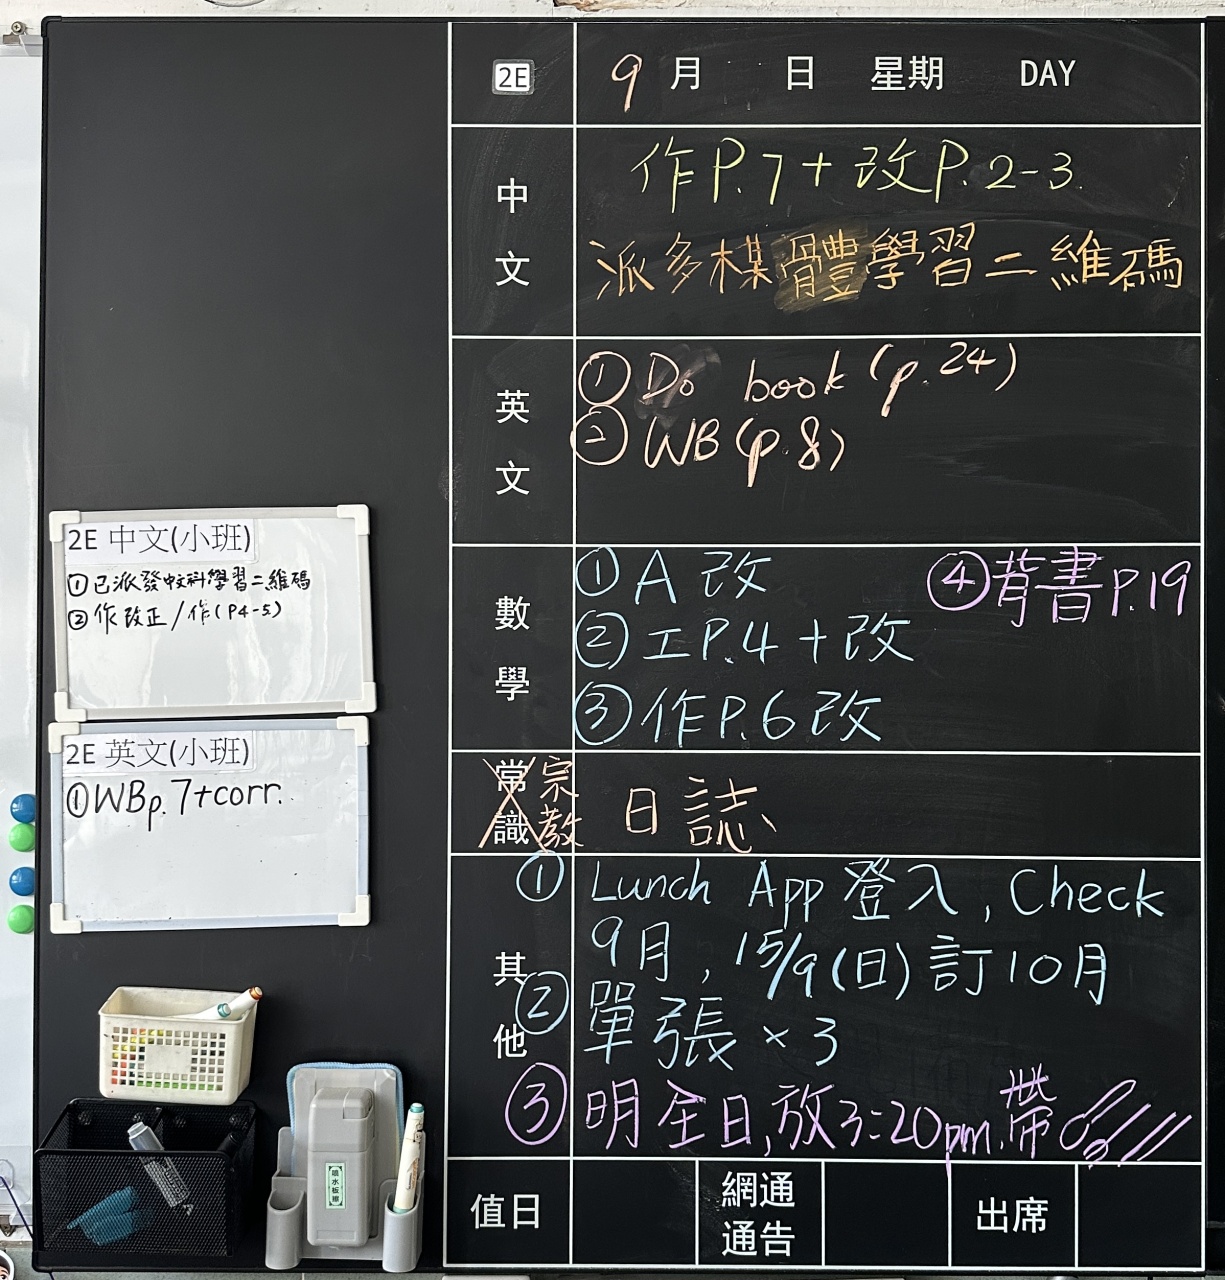 2E 9月 日 星期 DAY
中文
作P.7+改P.2-3.
派多棋體學習二維碼
英文
① Do book (p.24)
② WB (p.8)
數學
① A 改
② 工P.4+改
③ 作P.6改
④ 背書P.19
常識 宗教
日誌
其他
① Lunch App 登入, Check
9月, 15/9(日)訂10月
② 單張×3
③ 明全日,放3:20pm.帶
值日
網通
通告
出席
2E 中文(小班)
① 已派發中文科學習二維碼
② 作改正/作(P4-5)
2E 英文(小班)
① WBp.7+corr.
吸水板擦